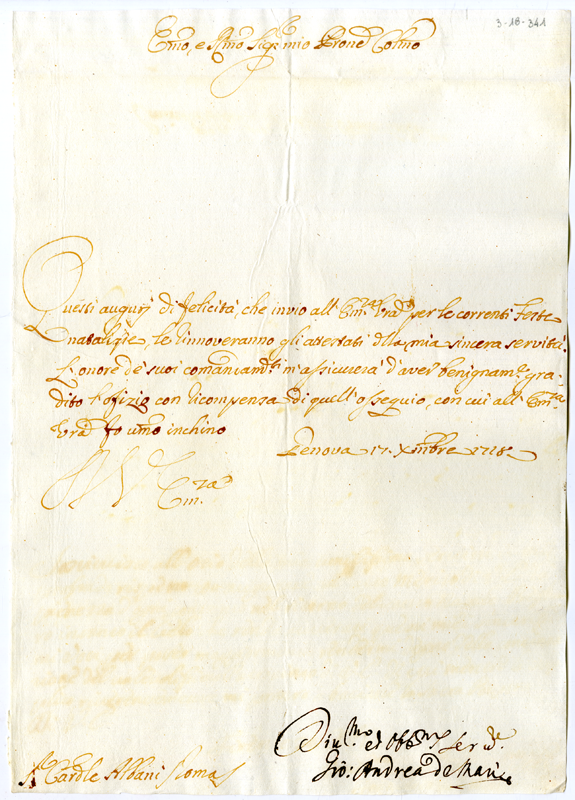 3-18-341
Emo, e Rmo Sigr mio Prone Colmo
Questi augurj di felicità, che invio all' Emza Vrà per le correnti Feste
natalizie, le rinnoveranno gli attestati della mia sincera servitù.
L'onore de' suoi comandamti m'assicurerà d'aver benignamte gra-
dito l'ofizio con ricompensa di quell'ossequio, con cui all' Emza
Vrà fo umo inchino
Genova 17. Xmbre 1718.
Emza
Sr Cardle Albani Roma
Diumo ed Obbmo Serre
Gio: Andrea de Mari